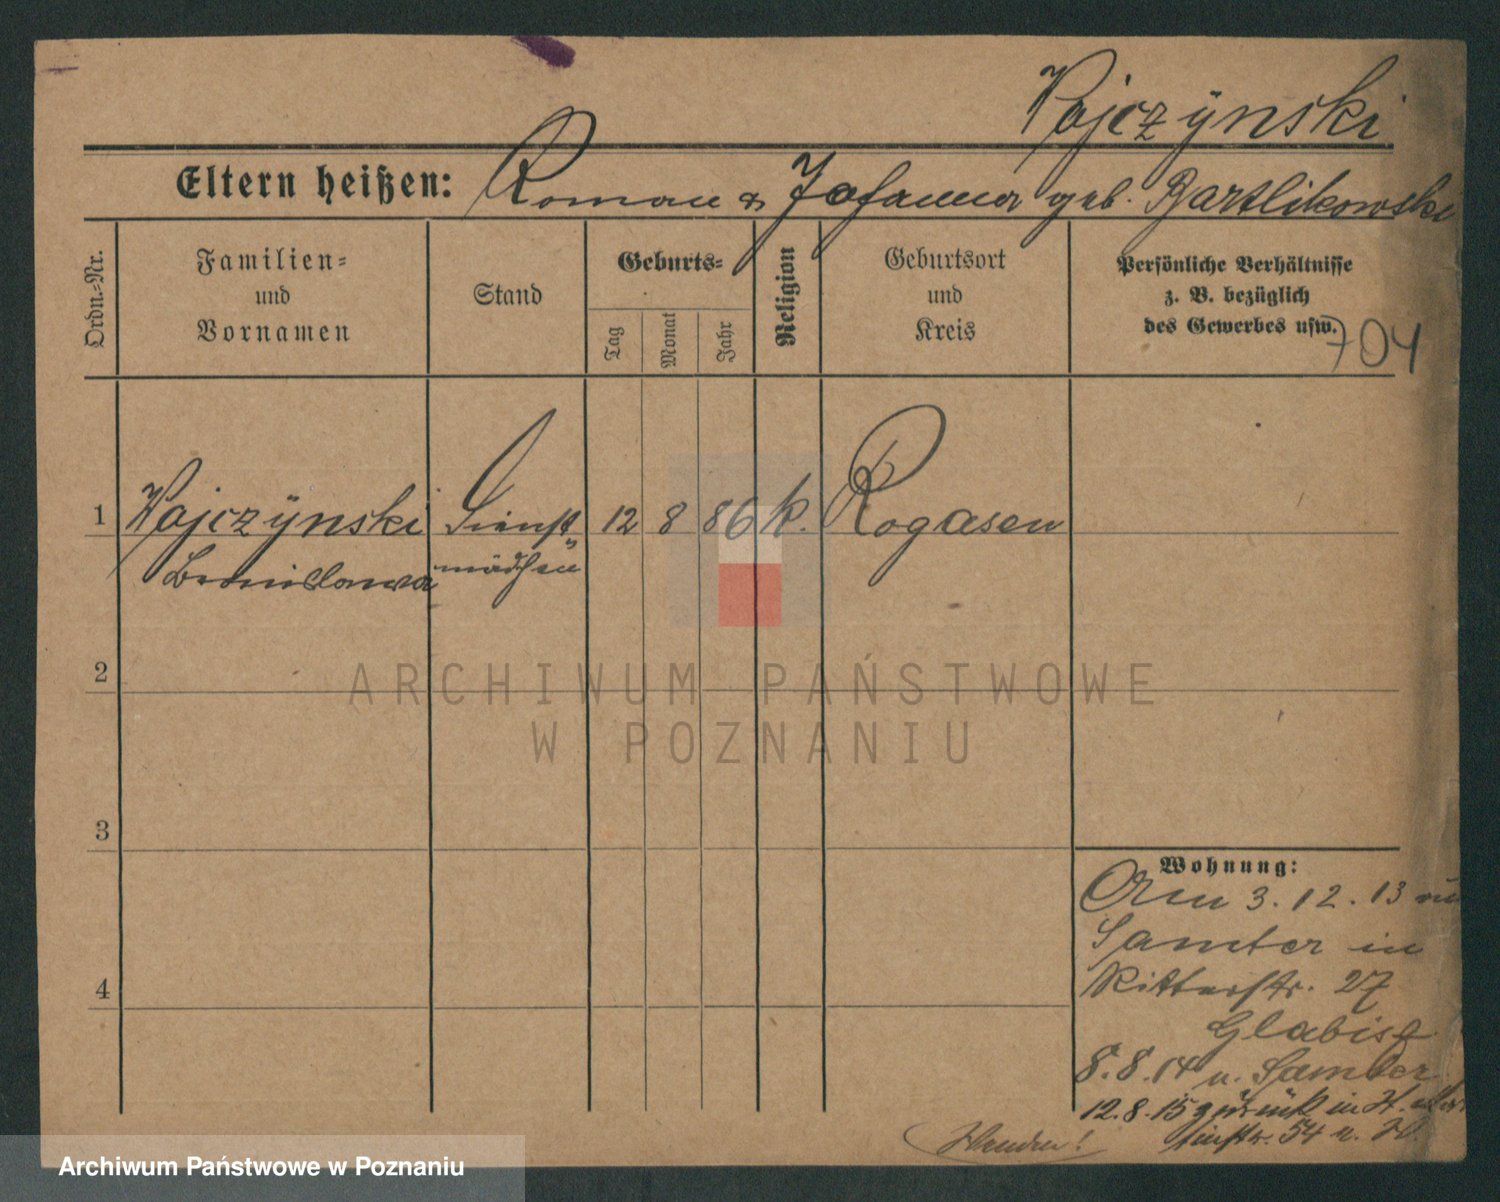 Wojczÿnski
Eltern heißen: Roman & Johanna geb. Bartlikowski
Ordn.-Nr.
Familien-
und
Vornamen
Stand
Geburts-
Tag
Monat
Jahr
Religion
Geburtsort
und
Kreis
Persönliche Verhältnisse
z. B. bezüglich
des Gewerbes usw.
704
1 Wojczÿnski Dienst- 12 8 86 k. Rogasen
Bronislawa mädchen
2
3
4
Wohnung:
Am 3.12.13 
Samter in
Ritterstr. 27
Glabisz
8.8.14 n. Samter
12.8.15 zurück in
54
Wenden!
ARCHIWUM PAŃSTWOWE
W POZNANIU
Archiwum Państwowe w Poznaniu